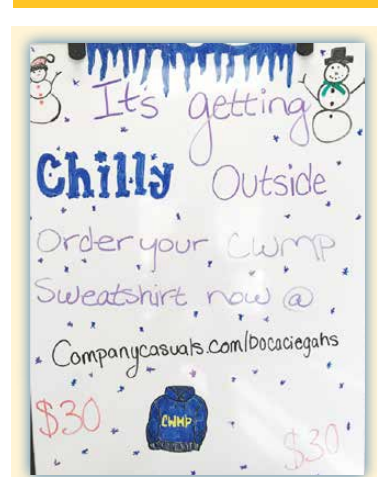 Its getting
Chilly Outside
Order your CWMP
Sweatshirt now @
Companycasuals.com/bocaciegahs
$30
CWMP
$30